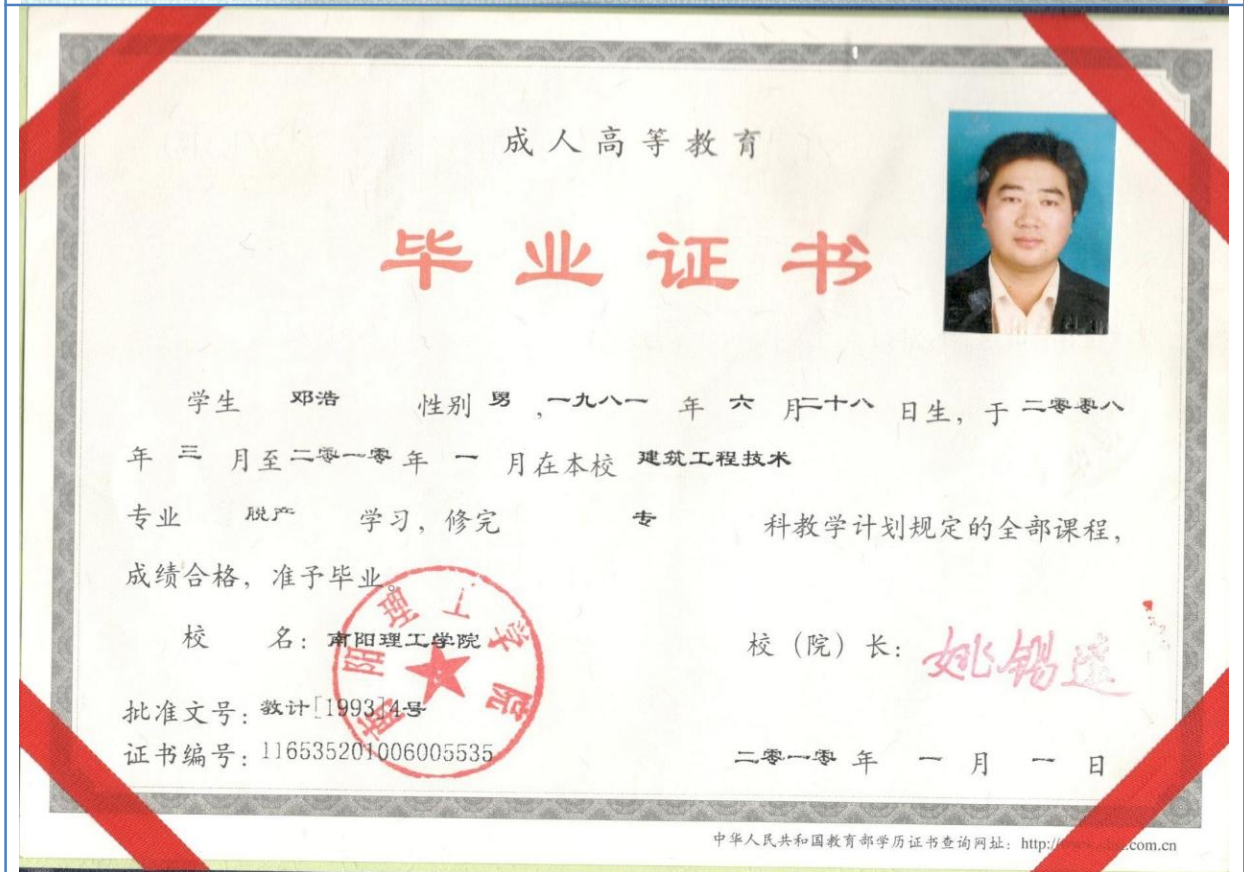 成人高等教育
毕业证书
学生 邓浩 性别 男 ,一九八一 年 六 月二十八 日生, 于 二零零八
年 三 月至 二零一零 年 一 月在本校 建筑工程技术
专业 脱产 学习, 修完 专 科教学计划规定的全部课程,
成绩合格, 准予毕业。
校 名: 南阳理工学院 校（院）长: 姚锡远
南阳理工学院
批准文号: 教计[1993]4号
证书编号: 116535201006005535 二零一零 年 一 月 一 日
中华人民共和国教育部学历证书查询网址: http:// .com.cn